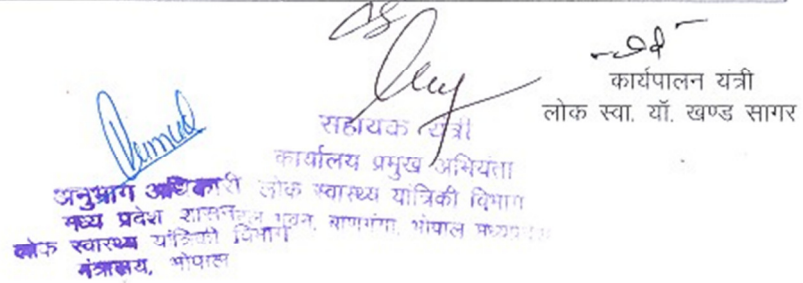 कार्यपालन यंत्री
लोक स्वा. यॉ. खण्ड सागर
सहायक यंत्री
कार्यालय प्रमुख अभियंता
लोक स्वास्थ्य यांत्रिकी विभाग
भवन, बाणगंगा, भोपाल मध्यप्रदेश
अनुभाग अधिकारी
मध्य प्रदेश शासन
लोक स्वास्थ्य यांत्रिकी विभाग
मंत्रालय, भोपाल